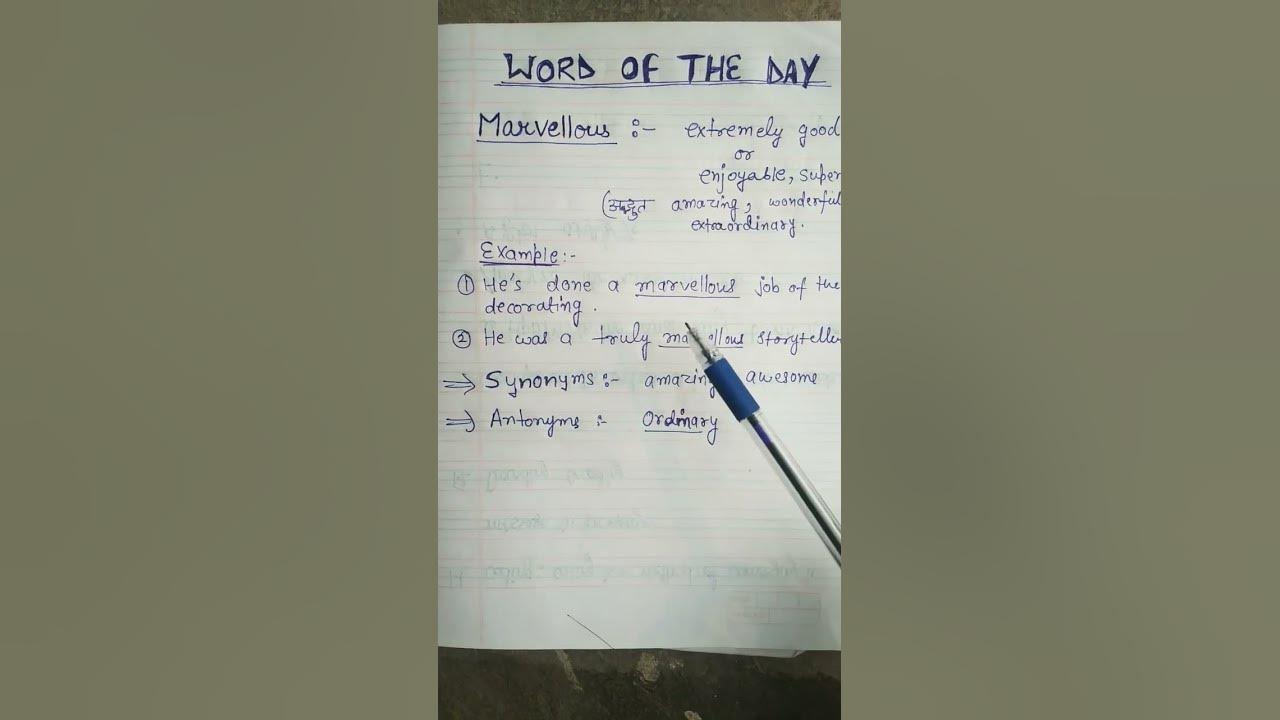 WORD OF THE DAY
Marvellous :- extremely good
or
enjoyable, super
(अद्भुत amazing, wonderful
extraordinary.
Example:-
① He's done a marvellous job of the
decorating.
② He was a truly storytelle
⇒ Synonyms:- amazing awesome
⇒ Antonyms :- Ordinary